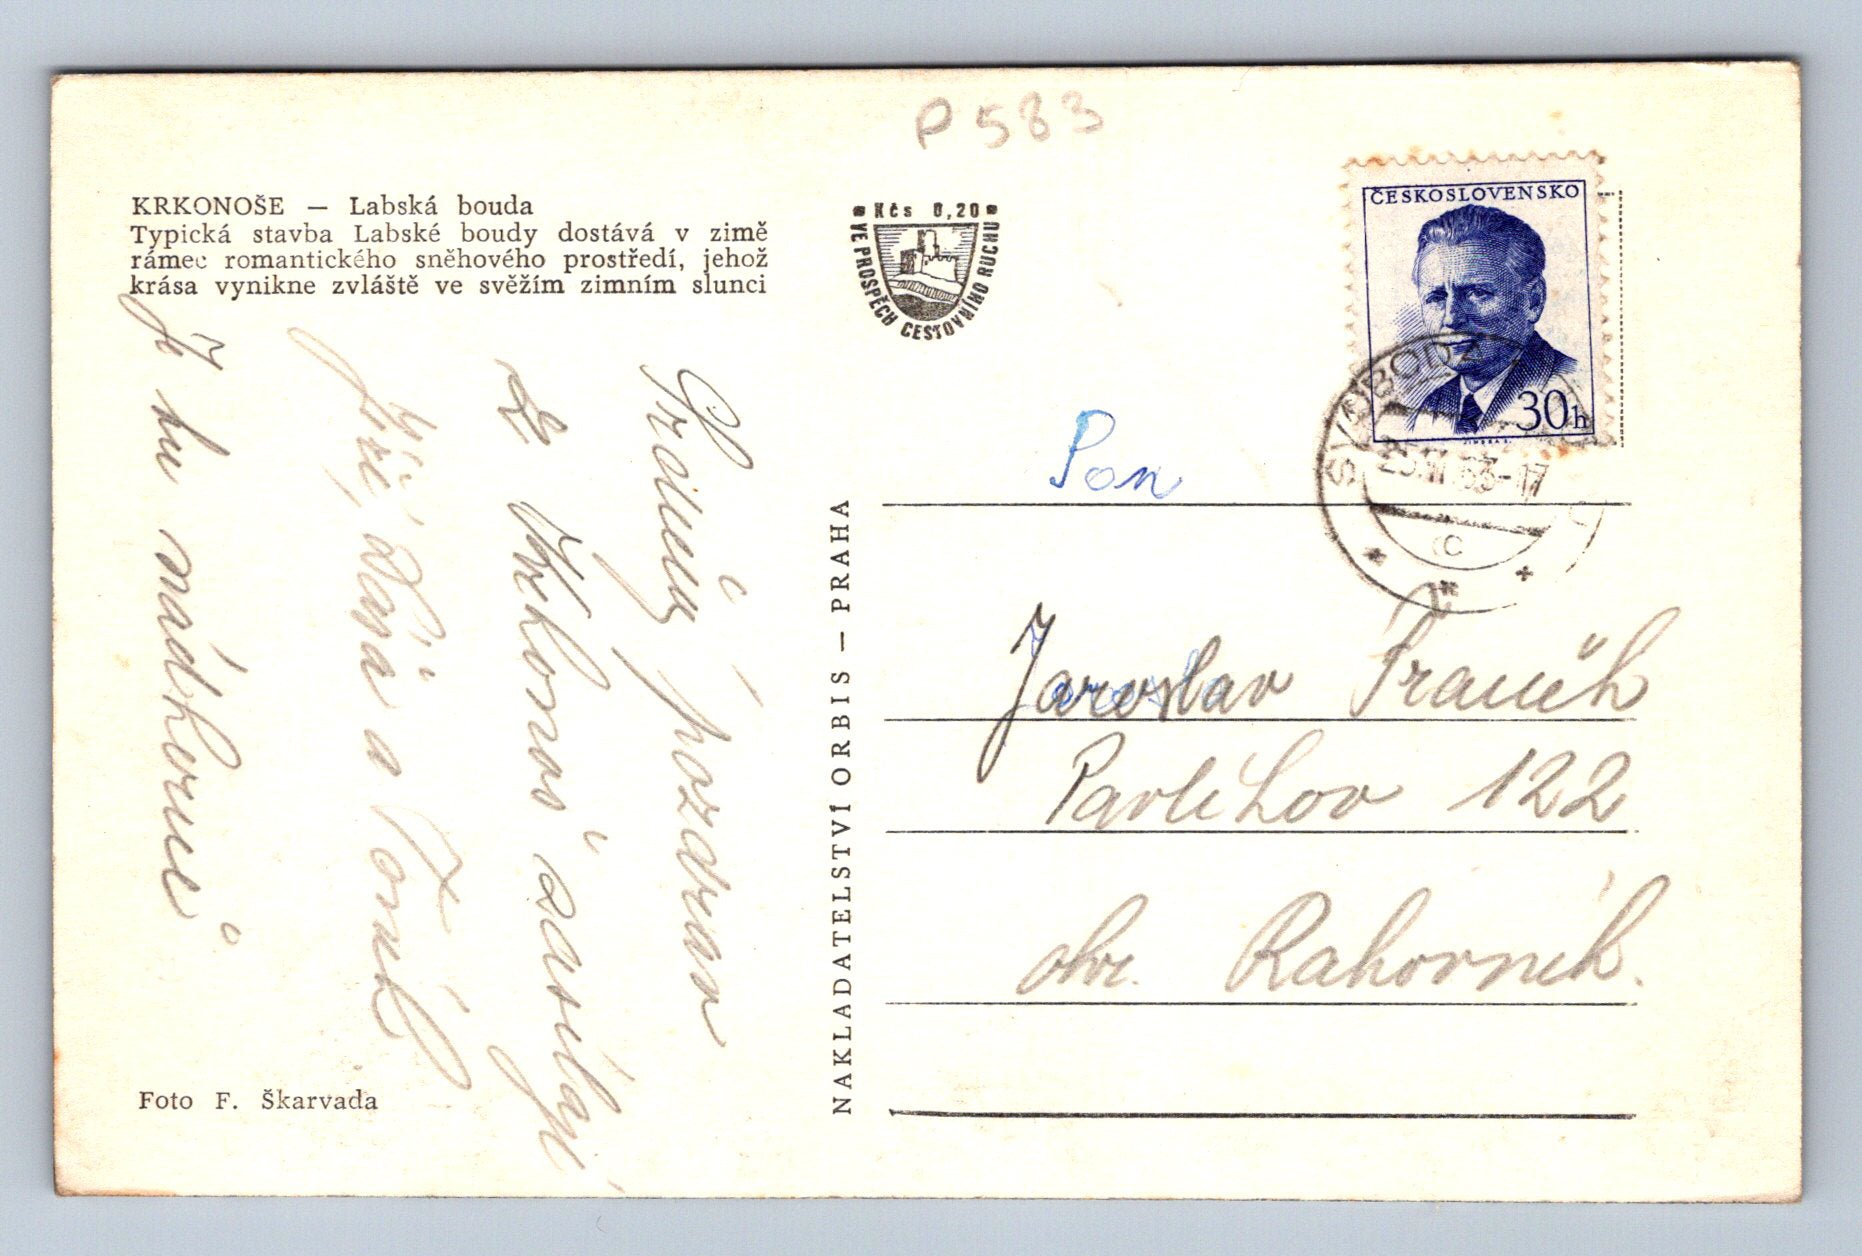 P 583
KRKONOŠE — Labská bouda
Typická stavba Labské boudy dostává v zimě
rámec romantického sněhového prostředí, jehož
krása vynikne zvláště ve svěžím zimním slunci
Kčs 0,20
VE PROSPĚCH CESTOVNÍHO RUCHU
ČESKOSLOVENSKO
30h
SVOBODA
63-17
c
Srdečný pozdrav
z Krkonoš zasílají
Jiří, Váňa a Toník
Je tu nádherně
NAKLADATELSTVÍ ORBIS — PRAHA
Pan
Jaroslav
Pavlíkov 122
okr. Rakovník.
Foto F. Škarvada